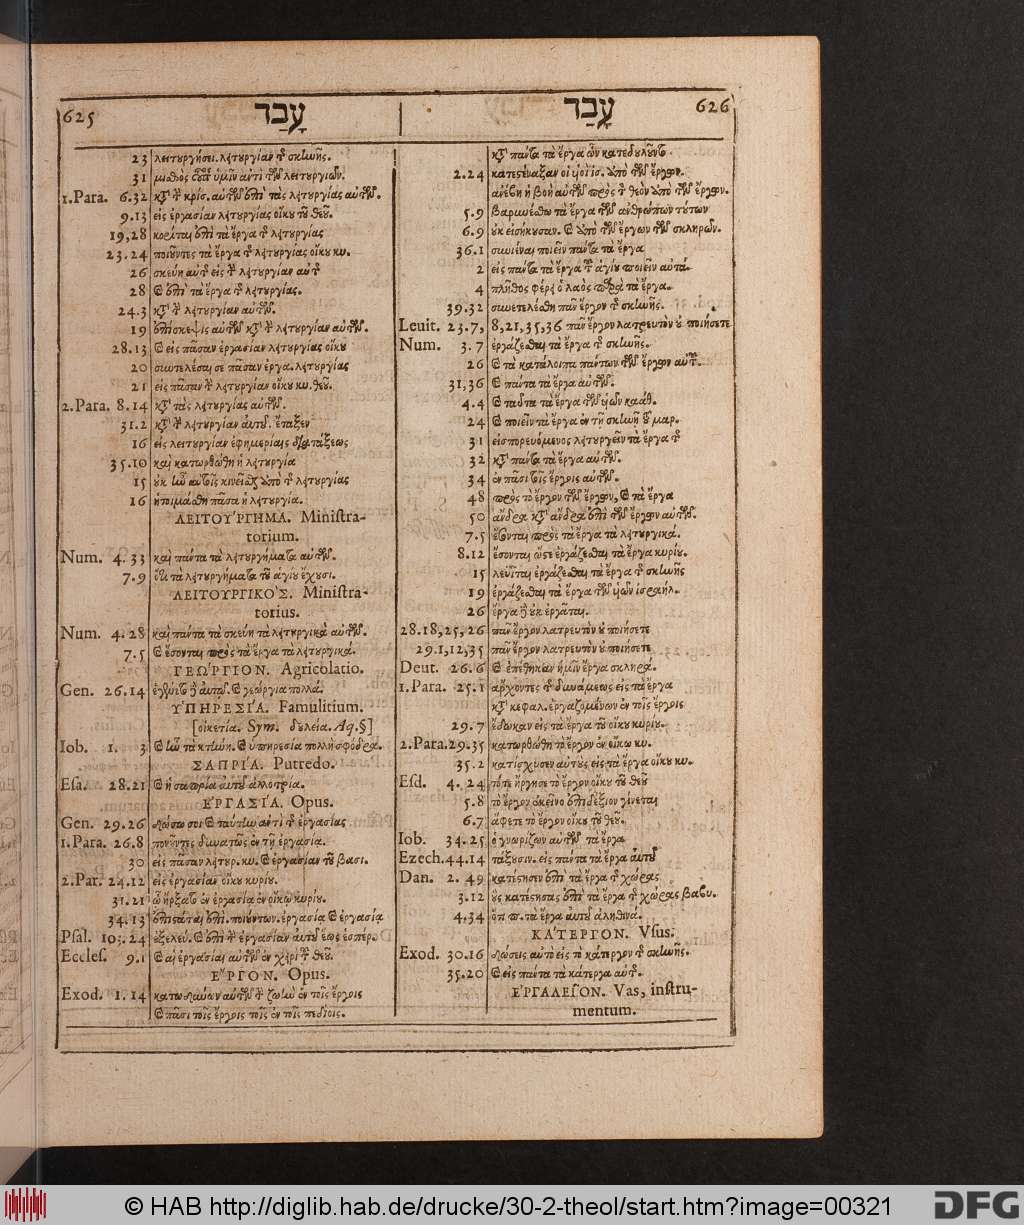 625 עָבַד
23 λειτουργήσει. λειτουργίαν τ σκηνῆς.
31 μισθὸς ὑμῖν ἀντὶ τῶν λειτουργιῶν.
1.Para. 6.32 κτ τ κρίσ. αὐτῶν ἐπὶ τὰς λειτουργίας αὐτῶν.
9.13 εἰς ἐργασίαν λειτουργίας οἴκου τοῦ θεοῦ.
19,28 ἐπὶ τὰ ἔργα τ λειτουργίας
23.24 ποιοῦντες τὰ ἔργα τ λειτουργίας οἴκου κυ.
26 σκεύη αὐτ εἰς τ λειτουργίαν αὐτ
28 ἐπὶ τὰ ἔργα τ λειτουργίας.
24.3 κτ τ λειτουργίαν αὐτῶν.
19 ἐπίσκεψις αὐτῶν κτ τ λειτουργίαν αὐτῶν.
28.13 εἰς πᾶσαν ἐργασίαν λειτουργίας οἴκου
20 συντελέσαι σε πᾶσαν ἐργα. λειτουργίας
21 εἰς πᾶσαν τ λειτουργίαν οἴκου κυ. θεοῦ.
2.Para. 8.14 κτ τὰς λειτουργίας αὐτῶν.
31.2 κτ τ λειτουργίαν αὐτοῦ. ἔταξεν
16 εἰς λειτουργίαν ἐφημερίαις διατάξεως
35.10 καὶ κατωρθώθη ἡ λειτουργία
15 οὐκ ἦν αὐτοῖς κινεῖσθαι ὑπὸ τ λειτουργίας
16 ἡτοιμάσθη πᾶσα ἡ λειτουργία.
ΛΕΙΤΟΎΡΓΗΜΑ. Miniſtra-
torium.
Num. 4.33 καὶ πάντα τὰ λειτουργήματα αὐτῶν.
7.9 ὅτι τὰ λειτουργήματα τοῦ ἁγίου ἔχουσι.
ΛΕΙΤΟΥΡΓΙΚΟ΄Σ. Miniſtra-
torius.
Num. 4.28 καὶ πάντα τὰ σκεύη τὰ λειτουργικὰ αὐτῶν.
7.5 ἔσονται πρὸς τὰ ἔργα τὰ λειτουργικά.
ΓΕΏΡΓΙΟΝ. Agricolatio.
Gen. 26.14 γεώργια πολλά.
ὙΠΗΡΕΣΊΑ. Famulitium.
[οἰκετία. Sym. δουλεία. Aq.§]
Iob. 1. 3 ἦν τὰ κτήνη. ὑπηρεσία πολλὴ σφόδρα.
ΣΑΠΡΊΑ. Putredo.
Eſa. 28.21 ἡ σαπρία αὐτοῦ ἀλλοτρία.
ἘΡΓΑΣΊΑ. Opus.
Gen. 29.26 δώσω σοι ταύτην ἀντὶ τ ἐργασίας
1.Para. 26.8 ποιοῦντες δυνατῶς ἐν τῇ ἐργασία.
30 εἰς πᾶσαν λειτουρ. κυ. ἐργασίαν τοῦ βασι.
2.Par. 24.12 εἰς ἐργασίαν οἴκου κυρίου.
31.21 ᾧ ἤρξατο ἐν ἐργασίᾳ ἐν οἴκῳ κυρίου.
34.13 ἐπιστάται ἐπὶ. ποιούντων. ἐργασία ἐργασία
Pſal. 103.24 ἐξελεύ. ἐπὶ τ ἐργασίαν αὐτοῦ ἕως ἑσπέρ.
Eccleſ. 9.1 αἱ ἐργασίαι αὐτῶν ἐν χειρὶ τ θεοῦ.
ἜΡΓΟΝ. Opus.
Exod. 1.14 κατωδύνων αὐτῶν τ ζωὴν ἐν τοῖς ἔργοις
πᾶσι τοῖς ἔργοις τοῖς ἐν τοῖς πεδίοις.
עָבַד 626
κτ πάντα τὰ ἔργα ὧν κατεδουλοῦντο
2.24 κατεστέναξαν οἱ υἱοὶ ἰσ. ὑπὸ τῶν ἔργων.
ἀνέβη ἡ βοὴ αὐτῶν πρὸς τ θεὸν ὑπὸ τῶν ἔργων.
5.9 βαρυνέσθω τὰ ἔργα τῶν ἀνθρώπων τούτων
6.9 οὐκ εἰσήκουσαν. ὑπὸ τῶν ἔργων τῶν σκληρῶν.
36.1 συνιέναι ποιεῖν πάντα τὰ ἔργα
2 εἰς πάντα τὰ ἔργα τ ἁγίου ποιεῖν αὐτά.
4 πλῆθος φέρει ὁ λαὸς παρὰ τὰ ἔργα.
39.32 συνετελέσθη πᾶν ἔργον τ σκηνῆς.
Leuit. 23.7, 8,21,35,36 πᾶν ἔργον λατρευτὸν οὐ ποιήσετε
Num. 3. 7 ἐργάζεσθαι τὰ ἔργα τ σκηνῆς.
26 τὰ κατάλοιπα πάντων τῶν ἔργων αὐτ.
31,36 πάντα τὰ ἔργα αὐτῶν.
4.4 ταῦτα τὰ ἔργα τῶν υἱῶν καάθ.
24 ποιεῖν τὰ ἔργα ἐν τῇ σκηνῇ τοῦ μαρ.
31 εἰσπορευόμενος λειτουργεῖν τὰ ἔργα τ
32 κτ πάντα τὰ ἔργα αὐτῶν.
34 ἐν πᾶσι τοῖς ἔργοις αὐτῶν.
48 πρὸς τὸ ἔργον τῶν ἔργων, τὰ ἔργα
50 ἄνδρα κτ ἄνδρα ἐπὶ τῶν ἔργων αὐτῶν.
7.5 ἔσονται πρὸς τὰ ἔργα τὰ λειτουργικά.
8.12 ἔσονται ὥστε ἐργάζεσθαι τὰ ἔργα κυρίου.
15 λευῖται ἐργάζεσθαι τὰ ἔργα τ σκηνῆς
19 ἐργάζεσθαι τὰ ἔργα τῶν υἱῶν ἰσραήλ.
26 ἔργα οὐκ ἐργᾶται.
28.18,25,26 πᾶν ἔργον λατρευτὸν οὐ ποιήσετε
29.1,12,35 πᾶν ἔργον λατρευτὸν οὐ ποιήσετε
Deut. 26.6 ἐπέθηκαν ἡμῖν ἔργα σκληρά.
1.Para. 25.1 ἄρχοντες τ δυνάμεως εἰς τὰ ἔργα
κτ κεφαλ. ἐργαζομένων ἐν τοῖς ἔργοις
29.7 ἔδωκαν εἰς τὰ ἔργα τοῦ οἴκου κυρίου.
2.Para.29.35 κατωρθώθη τὸ ἔργον ἐν οἴκῳ κυ.
35.2 κατίσχυσεν αὐτοὺς εἰς τὰ ἔργα οἴκου κυ.
Eſd. 4. 24 τότε ἤργησε τὸ ἔργον οἴκου τοῦ θεοῦ
5.8 τὸ ἔργον ἐκεῖνο ἐπιδέξιον γίνεται
6.7 ἄφετε τὸ ἔργον οἴκου τοῦ θεοῦ.
Iob. 34.25 ὁ γνωρίζων αὐτῶν τὰ ἔργα
Ezech.44.14 τάξουσιν. εἰς πάντα τὰ ἔργα αὐτοῦ
Dan. 2. 49 κατέστησεν ἐπὶ τὰ ἔργα τ χώρας
3.12 οὓς κατέστησας ἐπὶ τὰ ἔργα τ χώρας βαβυ.
4,34 ὅτι π. τὰ ἔργα αὐτοῦ ἀληθινά.
ΚΆΤΕΡΓΟΝ. Vſus.
Exod. 30.16 δώσεις αὐτὸ εἰς τὸ κάτεργον τ σκηνῆς.
35.20 εἰς πάντα τὰ κάτεργα αὐτ.
ἘΡΓΑΛΕΙ͂ΟΝ. Vas, inſtru-
mentum.
© HAB http://diglib.hab.de/drucke/30-2-theol/start.htm?image=00321
DFG